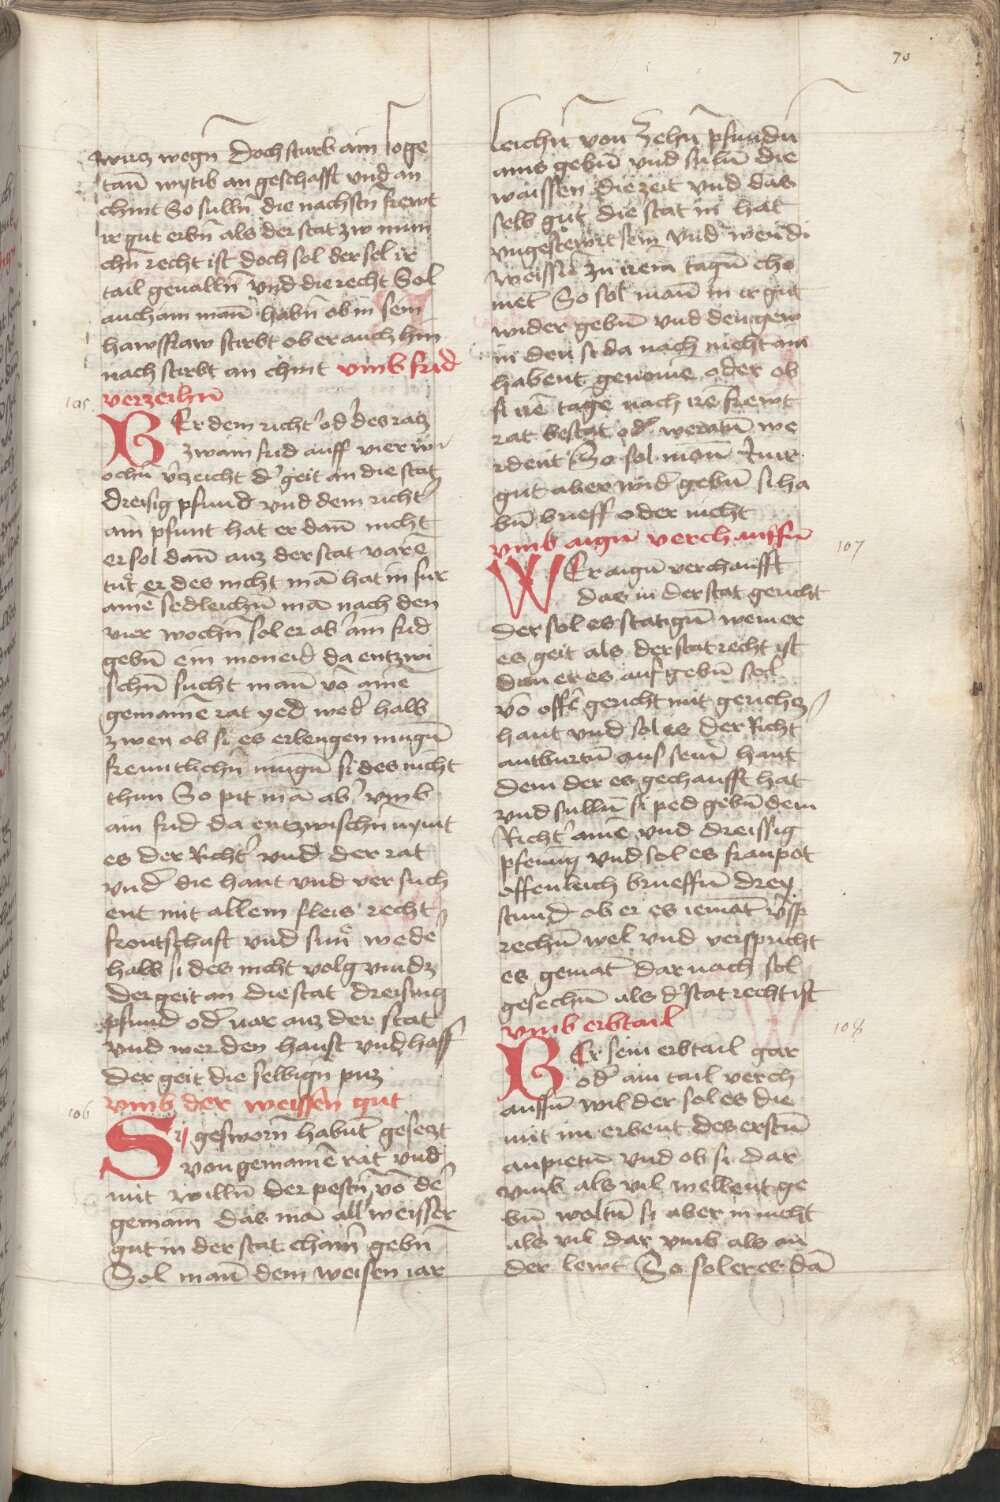 70
wirz wegn̄ Doch sturb ain soge
tan̄ wytib an geschafft vnd an
chint So sulln̄ die nachstn̄ frewt
ir gut erbn̄ als der stat zw mun
chn̄ recht ist doch sol der sel ir
tail geualln̄ vnd die recht Sol
auch am man̄ habn̄ ob in sein
hawsfraw stirbt ob er auch hin
nach stirbt an chint vmb frid
verzeihn̄
105
Er dem richt' od' des ratz
zwain frid auff vier w
ochn̄ v'zeicht d' geit an die stat
dreisig pfund vnd dem richt'
ain pfunt hat er dan̄ nicht
er sol dan̄ auz der stat varē
tut er des nicht mā hat in fur
ainē sedleichn̄ mā nach den
vier wochn̄ sol er ab' ain frid
gebn̄ ein moneid da entzwi
schn̄ sucht man̄ vō ainē
gemainē rat yed wed' halb
zwen ob si es erlengen mugn̄
freuntlichn̄ mugn̄ si des nicht
thun So pit mā ab' vmb
ain frid da entzwischn̄ nymt
es der Richt' vnd der rat
vnd die hant vnd versuch
ent mit allem fleis recht
frontschaft vnd sun wedē
halb si des nicht volg vindz
der geit an die stat dreissig
pfund od' var auz der stat
vnd wer den haust vnd hoff
der geit die selbign̄ puz
vmb der weissen gut
106
Si gesworn̄ habnt gesetzt
von gemainē rat vnd
mit willn̄ der pestn̄ vō de'
gemain das mā all weysser
gut in der stat cham̄ gebn̄
Sol man̄ dem weisen iar
leichn̄ von Zehn̄ pfundn̄
ains gebn̄ vnd suln̄ die
waissen die zeit vnd das
selb gut die stat in hat
vngestewrt sein vnd wen di
Weissn̄ zu irem tagn̄ cho
met So sol man̄ in ir gut
wider gebn̄ vnd den gew
in den si da nach nicht ain
habent genome oder ob
si irē tage nach irē frewt
rat bestat od' weratn̄ we
rdent So sol man̄ Inir
gut aber wid' gebn̄ si ha
bn̄ brieff oder nicht
vmb aign̄ verchauffn̄
107
WEr aign̄ verchaufft
das in der stat gericht
der sol es statign̄ wem er
es geit als der stat recht ist
dan er es auf gebn̄ sol
vō offē gericht mit gerichz
hant vnd sol es der Richt
antburtn̄ aus sein̄ hant
dem der es gechaufft hat
vnd sulln̄ si ped gebn̄ dem
Richt' ainē vnd dreissig
pfening vnd sol es franpot
offenleich brueffn̄ drey
stund ob er es iemāt v'sp
rechn̄ wel vnd verspricht
es gemāt dar nach sol
gesechn̄ als d' stat recht ist
vmb erbtail
108
Er sein erbtail gar
od' ain tail verch
auffn̄ wil der sol es die
mit im erbent des erstn̄
anpietn̄ vnd ob si dar
vmb als vil wellent ge
bn̄ woltn̄ si aber in nicht
als vil dar vmb als an
der lewt So sol er es dā